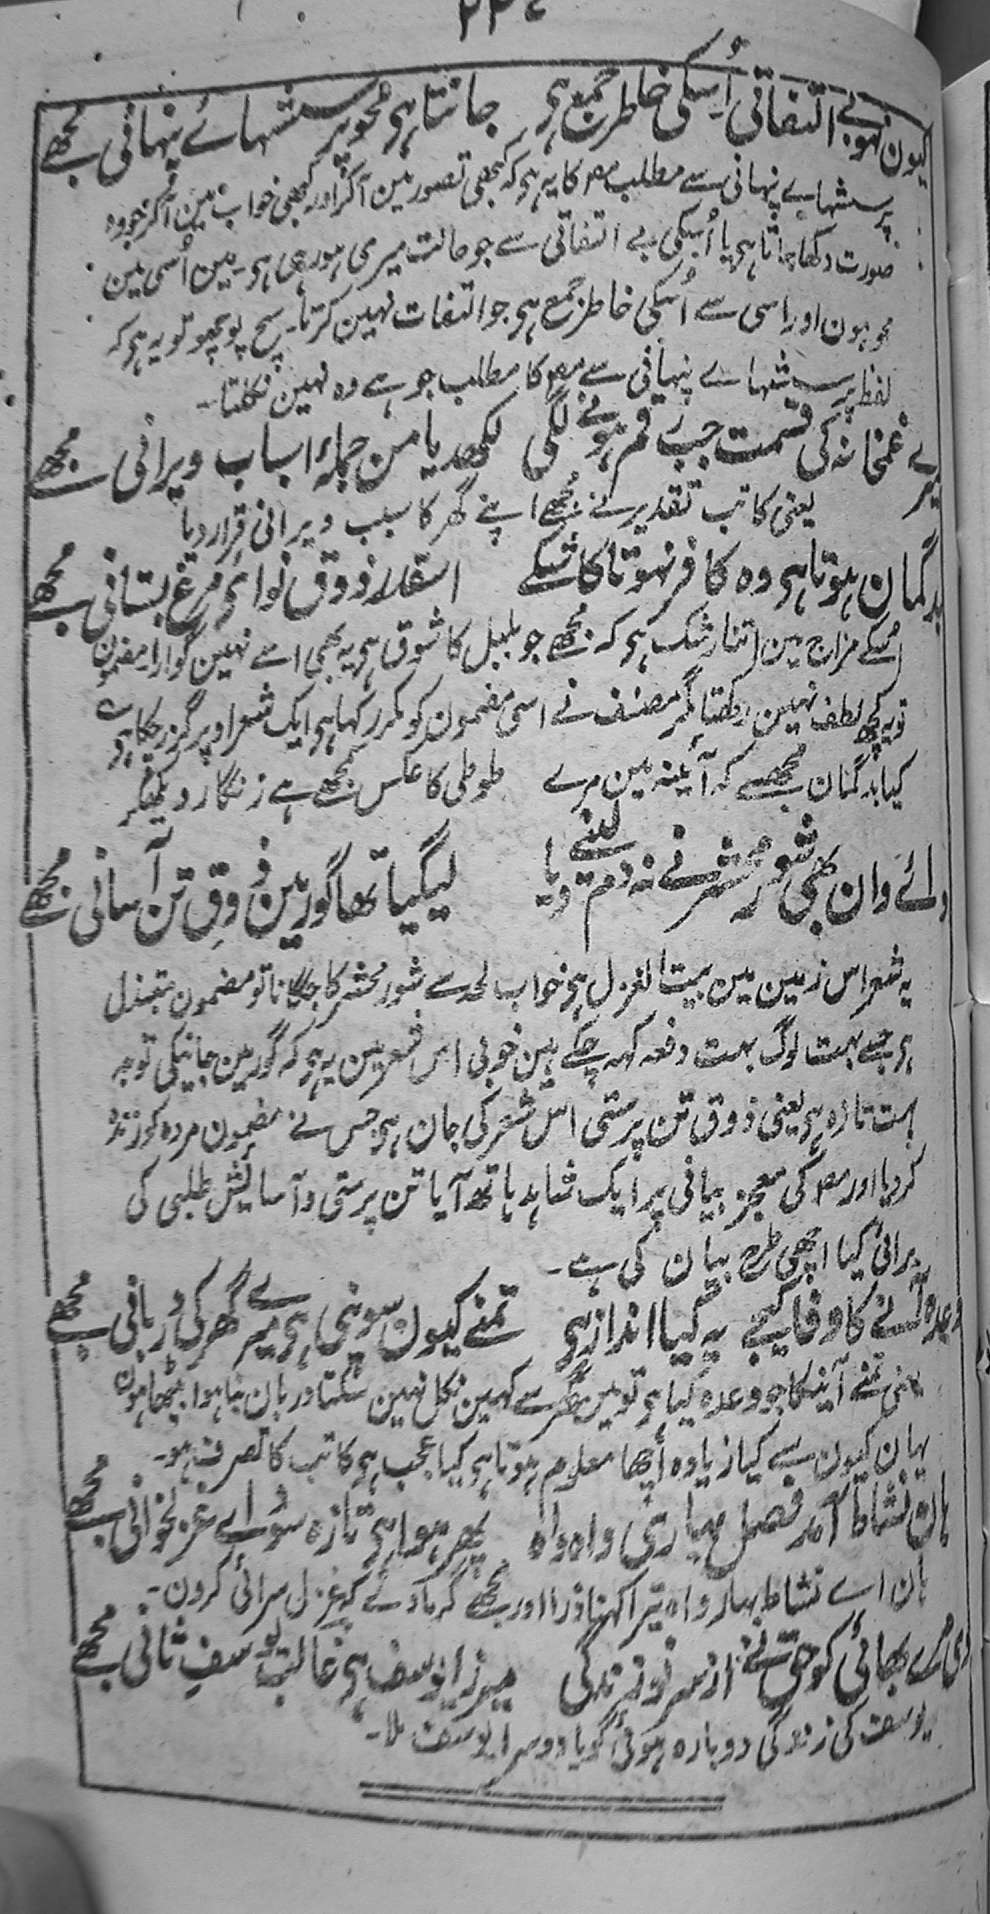 ۲۲۷
کیون نہو بے التفاتی اُسکی خاطر جمع ہی جانتا ہی محو پرسشہاے پنہانی مجھے
پرسشہاے پنہانی سے مطلب مصہ کا یہ ہی کہ کبھی تصور مین آکر اور کبھی خواب مین آکر جو وہ
صورت دکھا جاتا ہی یا اُسکی بے التفاتی سے جو حالت میری ہو رہی ہی۔ مین اُسی مین
محو ہون اور اسی سے اُسکی خاطر جمع ہی جو التفات نہین کرتا۔ سچ پوچھو تو یہ ہی کہ
لفظ پرسشہاے پنہانی سے مصہ کا مطلب جو ہے وہ نہین نکلتا۔
میرے غمخانہ کی قسمت جب رقم ہونے لگی لکھدیا من جملۂ اسباب ویرانی مجھے
یعنی کاتب تقدیر نے مجھے اپنے گھر کا سبب ویرانی قرار دیا
بدگمان ہوتا ہی وہ کافر نہوتا کاشکے اسقدر ذوق نواے مرغ بستانی مجھے
اُسکے مزاج مین اتنا رشک ہی کہ مجھے جو بلبل کا شوق ہی یہ بھی اسے نہین گوارا مضمون
تو یہ کچھ لطف نہین رکھتا مگر مصنف نے اسی مضمون کو مکرر کہا ہی ایک شعر اوپر گزر چکا ہی
کیا بدگمان مجھسے کہ آئینہ مین مرے طوطی کا عکس سمجھے ہے زنگار دیکھکر
وائے وان بھی شور محشر نے نہ دم لینے دیا لیگیا تھا گور مین ذوق تن آسانی مجھے
یہ شعر اس زمین مین بیت الغزل ہی خواب لحد سے شور محشر کا جگانا تو مضمون مبتذل
ہی جسے بہت لوگ بہت دفعہ کہہ چکے ہین خوبی اس شعر مین یہ ہی کہ گور مین جانیکی توجہ
بہت تازہ ہی یعنی ذوق تن پرستی اس شعر کی جان ہی جس نے مضمون مردہ کو زندہ
کر دیا اور مصہ کی معجز بیانی پر ایک شاہد ہاتھ آیا تن پرستی و آسایش طلبی کی
برائی کیا اچھی طرح بیان کی ہے۔
وعدہ آنے کا وفا کیجے یہ کیا انداز ہی تمنے کیون سونپی ہی میرے گھر کی دربانی مجھے
یعنی تمنے آنیکا جو وعدہ کیا ہی تو مین گھر سے کہین نکل نہین سکتا دربان بنا ہوا بیٹھا ہون
یہان کیون سے کیا زیادہ اچھا معلوم ہوتا ہی کیا عجب ہی کاتب کا تصرف ہو۔
ہان نشاط آمد فصل بہاری واہ واہ پھر ہوا ہی تازہ سودائے غزلخوانی مجھے
ہان اے نشاط بہار واہ تیرا کہنا ذرا اور مجھے گرما دے کہ غزل سرائی کرون۔
دی مرے بھائی کو حق نے از سر نو زندگی میرزا یوسف ہی غالب یوسف ثانی مجھے
یوسف کی زندگی دوبارہ ہوئی گویا دوسرا یوسف ملا۔